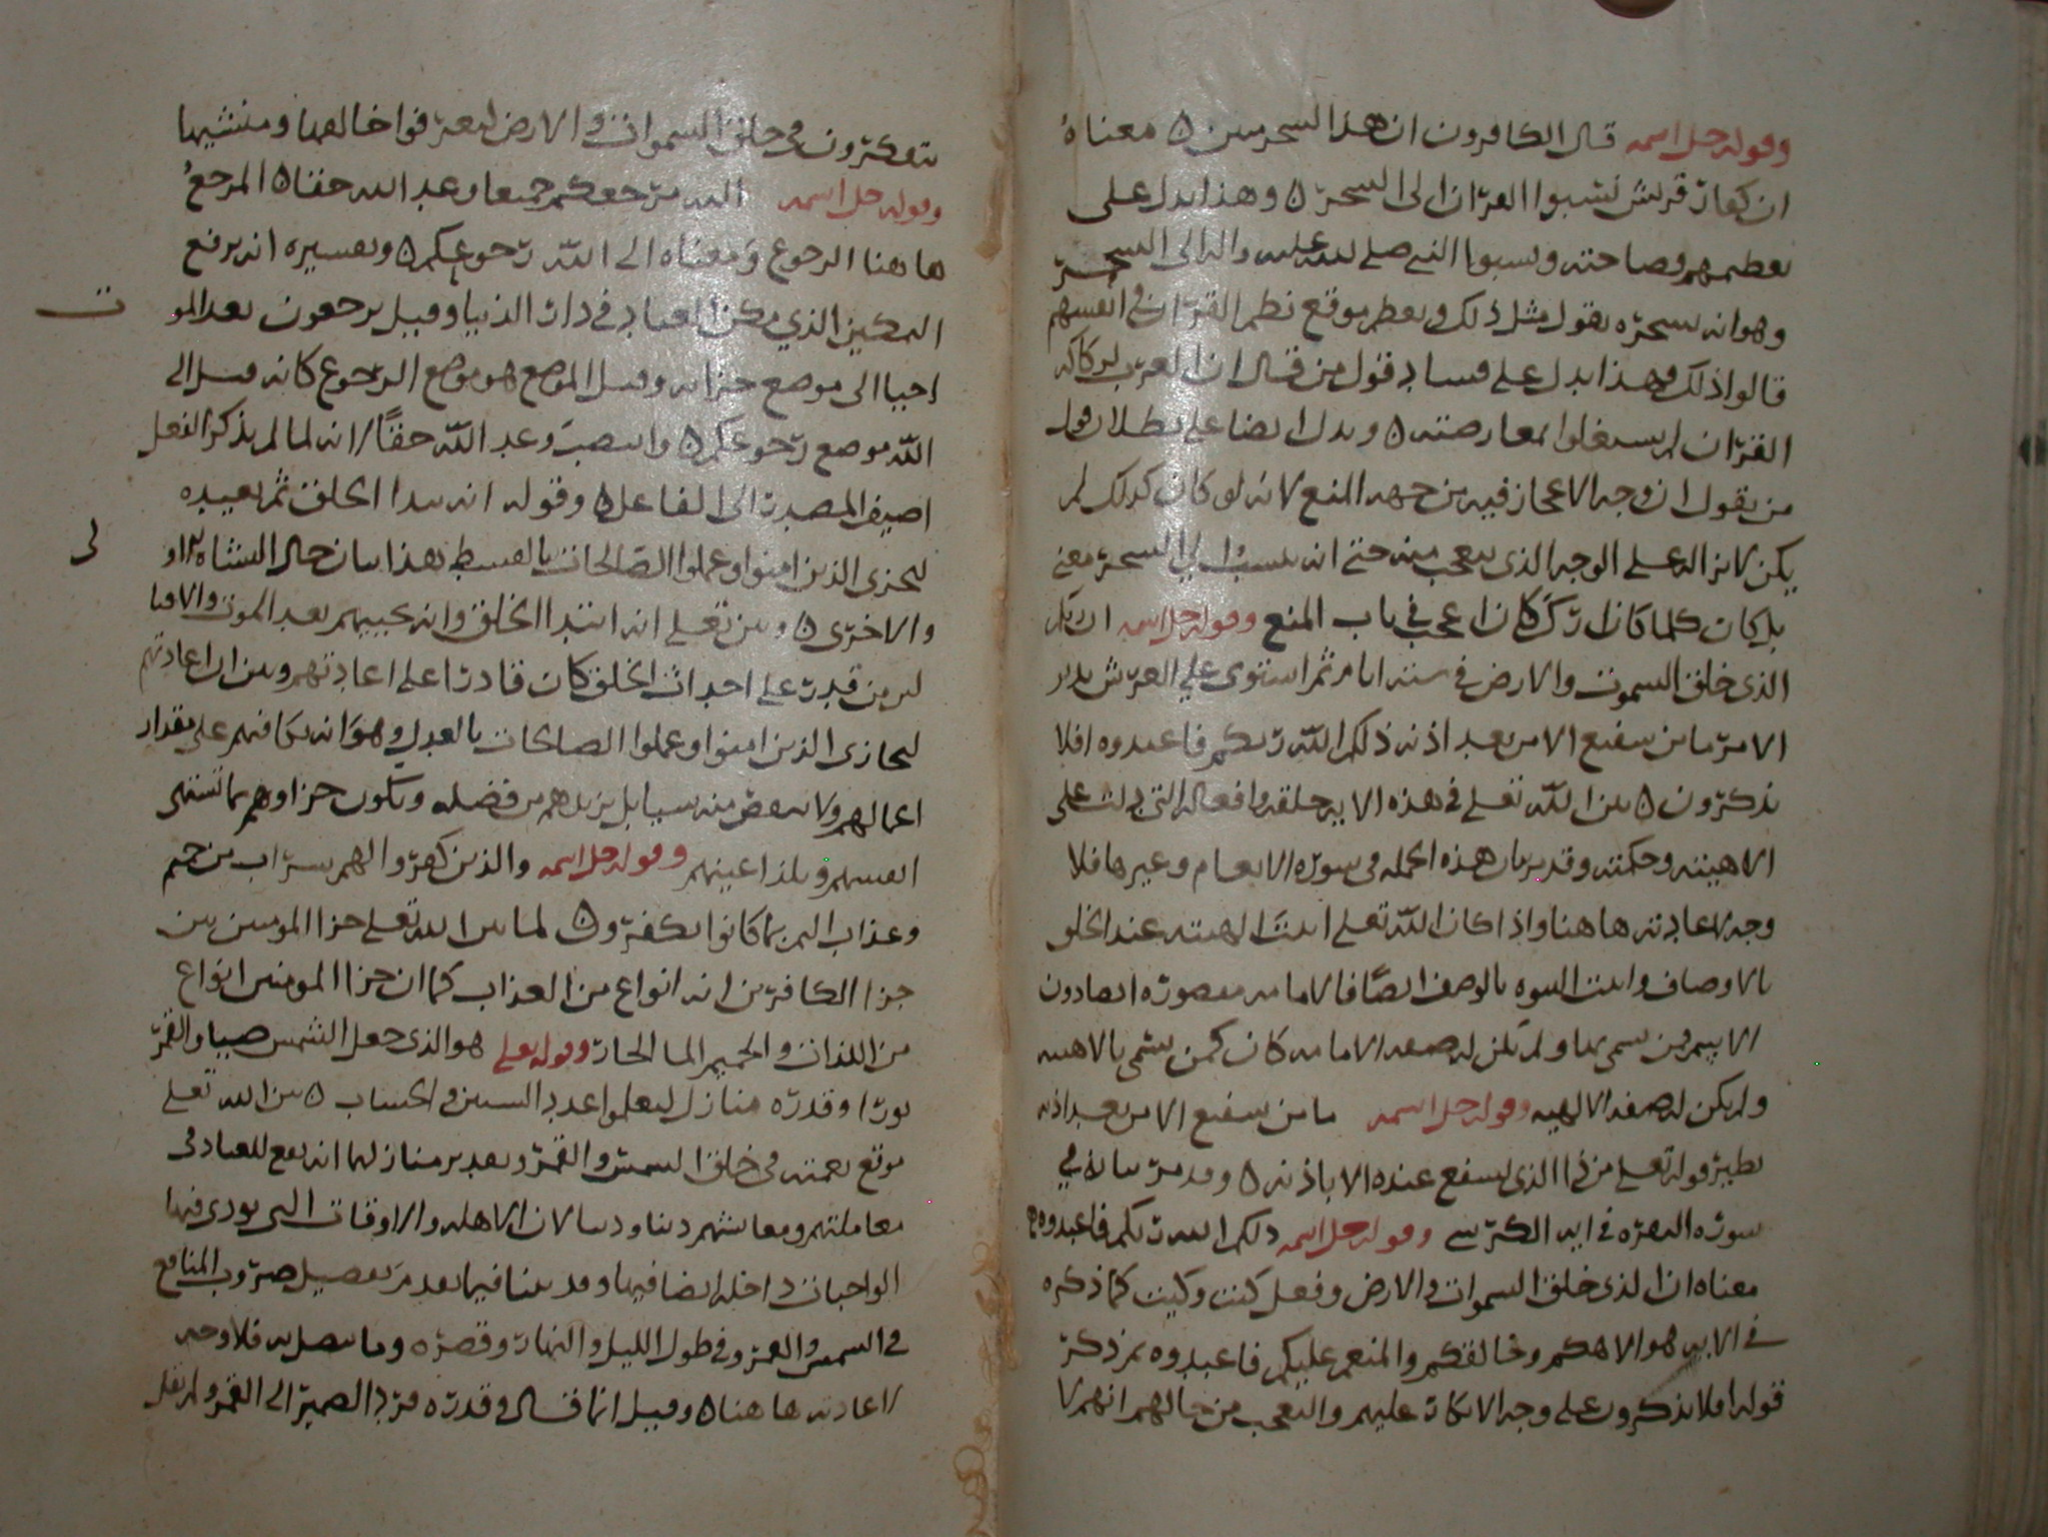 وقوله جل اسمه قال الكافرون ان هذا لسحر مبين ٥ معناهُ
ان كفار قريش نسبوا القرآن الى السحر ٥ وهذا يدل على
تعظيمهم فصاحته ونسبوا النبي صلى الله عليه واله الى السحر
وهو انه يسحره بقول مثل ذلك ويعظم موقع نظم القرآن في انفسهم
قالوا ذلك وهذا يدل على فساد قول من قال ان العرب
القرآن لم يشتغلوا بمعارضته ٥ ويدل ايضا على بطلان قول
من يقول ان وجه الاعجاز فيه من جهة المنع لانه لو كان كذلك لم
يكن لانزاله على الوجه الذي يتعجب منه حتى انه ينسب الى السحر معنى
بل كان كلما كان ارك كان اعجب في باب المنع وقوله جل اسمه ان ربكم
الذي خلق السموت والارض في ستة ايام ثم استوى على العرش يدبر
الامر ما من شفيع الا من بعد اذنه ذلكم الله ربكم فاعبدوه افلا
تذكرون ٥ بين الله تعلى في هذه الاية خلقه وافعاله التي دلت على
الاهيته وحكمته وقد بيان هذه الجملة في سورة الانعام وغيرها فلا
وجه لاعادته هاهنا واذا كان الله تعلى اثبت الهيته عند الخلق
بالاوصاف واثبت النبوة بالوصف ايضًا فالامامة مقصورة ايضا دون
الاسم ومن سمى بها ولم تكن له صفة الامامة كان كمن يسمى بالاهية
ولم يكن له صفة الالهية وقوله جل اسمه ما من شفيع الا من بعد اذنه
نظير قوله تعلى من ذا الذي يشفع عنده الا باذنه ٥ وقد مر بيانه في
سورة البقرة في اية الكرسي وقوله جل اسمه ذلكم الله ربكم فاعبدوه
معناه ان الذي خلق السموات والارض وفعل كيت وكيت كما ذكره
في الاية هو الاهكم وخالقكم والمنعم عليكم فاعبدوه ثم ذكر
قوله افلا تذكرون على وجه الانكار عليهم والتعجب من حالهم انهم لا
يتفكرون في خلق السموات والارض ليعرفوا خالقها ومنشيها
وقوله جل اسمه اليه مرجعكم جميعا وعد الله حقا ٥ المرجعُ
هاهنا الرجوع ومعناه الى الله رجوعكم ٥ وتفسيره انه يرفع
التمكين الذي مكن العباد في دار الدنيا وقيل يرجعون بعد المو
ت
احيا الى موضع جزائه وقيل المرجع هو موضع الرجوع كانه قيل الى
الله موضع رجوعكم ٥ وانتصب وعد الله حقًا لانه لما لم يذكر الفعل
اضيف المصدر الى الفاعل ٥ وقوله انه يبدا الخلق ثم يعيده
ليجزي الذين امنوا وعملوا الصالحات بالقسط بهذا بيان حال النشاة الاو
لى
والاخرى ٥ وبين تعلى انه ابتدا الخلق وانه يحييهم بعد الموت والافنا
لان من قدر على احداث الخلق كان قادرا على اعادتهم وبين ان اعادتهم
ليجازى الذين امنوا وعملوا الصالحات بالعدل وهو انه يكافيهم على مقدار
اعمالهم ولا ينقص منه شيا بل يزيدهم من فضله ويكون جزاوهم بما تشتهى
انفسهم وتلذ اعينهم وقوله جل اسمه والذين كفروا لهم شراب من حميم
وعذاب اليم بما كانوا يكفرون ٥ لما بين الله تعلى جزا المومنين بين
جزا الكافرين انه انواع من العذاب كما ان جزا المومنين انواع
من اللذات والحميم الما الحار وقوله تعلى هو الذى جعل الشمس ضيا والقمر
نورا وقدره منازل ليعلموا عدد السنين والحساب ٥ بين الله تعلى
موقع نعمته في خلق الشمس والقمر وتقدير منازلهما انه نفع للعباد في
معاملتهم ومعايشهم دينا ودنيا لان الاهلة والاوقات التى يودى فيها
الواجبات داخلة ايضا فيها وقد بينا فيما تقدم تفصيل ضروب المنافع
في الشمس والقمر وفي طول الليل والنهار وقصره وما يتصل به فلا وجه
لاعادته هاهنا ٥ وقيل انما قال وقدره فرد الضمير الى القمر ولم يقل